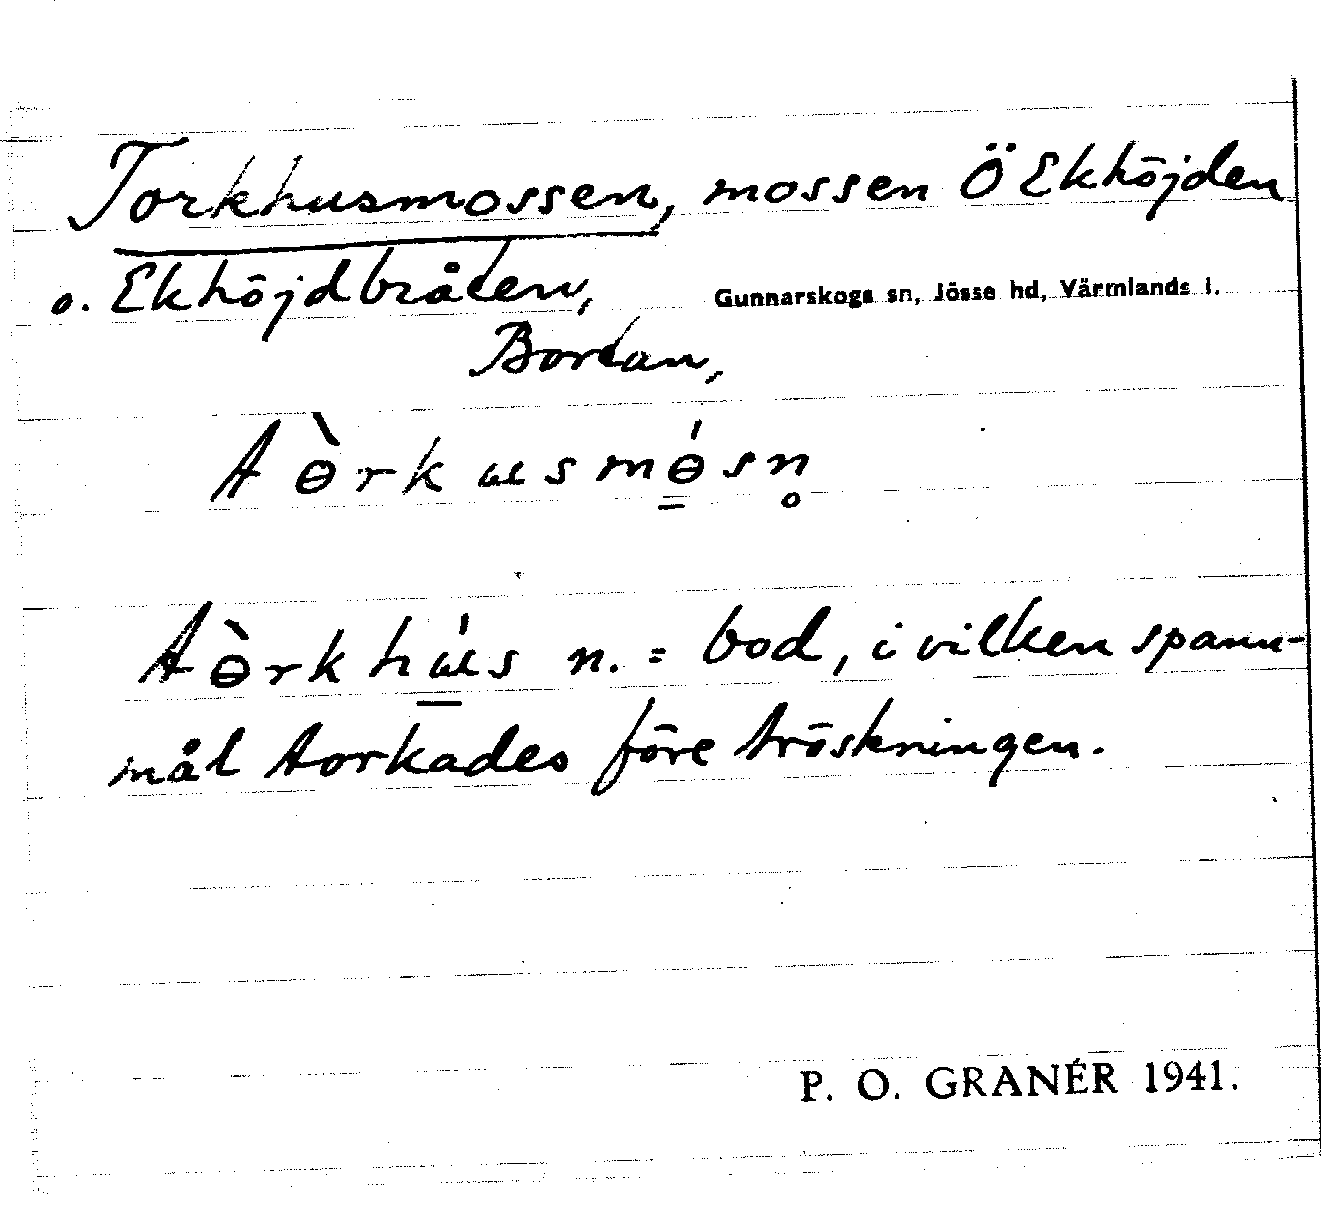 Torkhusmossen, mossen Ö Ekhöjden
o. Ekhöjdbråten,
Gunnarskogs sn, Jösse hd, Värmlands l.
Bortan,
tɵ̀rkusmɵ́sn̥
tɵ̀rkhú̱s n. = bod, i vilken spann-
mål torkades före tröskningen.
P. O. GRANÉR 1941.